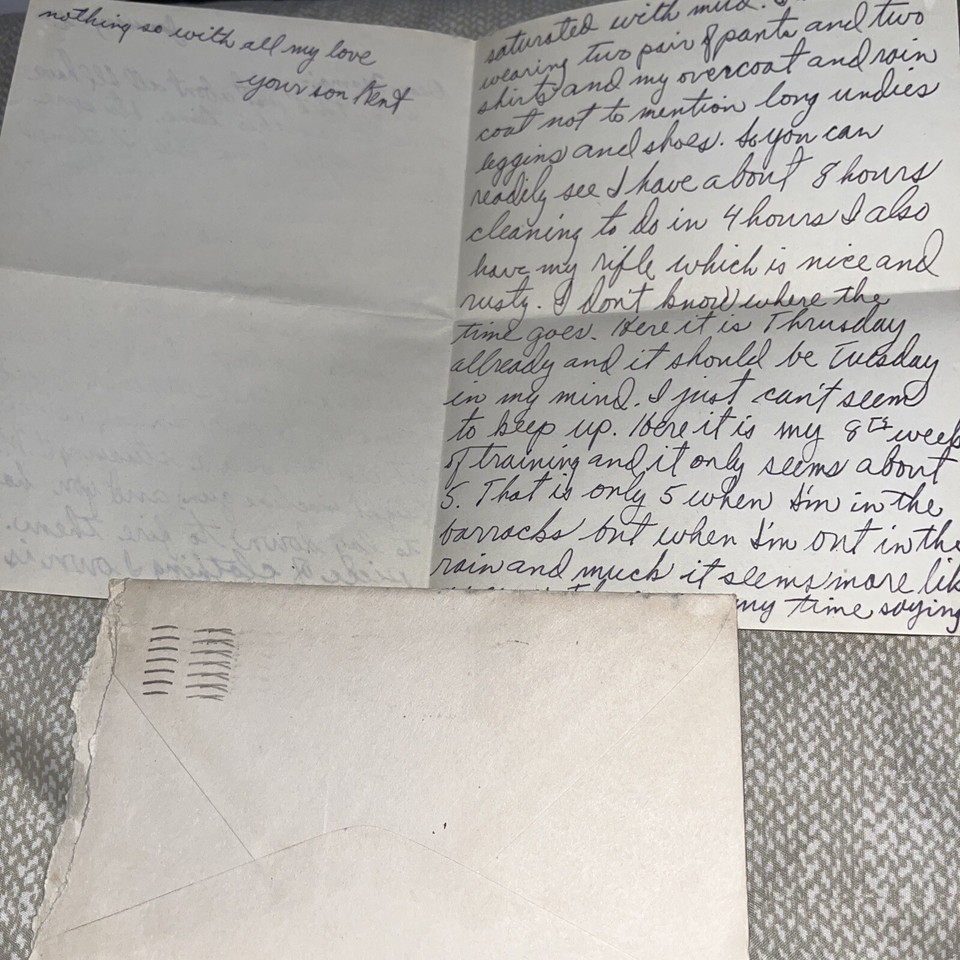 nothing so with all my love
your son Kent
saturated with mud.
wearing two pair of pants and two
shirts and my overcoat and rain
coat not to mention long undies
leggins and shoes. So you can
readily see I have about 8 hours
cleaning to do in 4 hours I also
have my rifle which is nice and
rusty. I don't know where the
time goes. Here it is Thrusday
allready and it should be Tuesday
in my mind. I just can't seem
to keep up. Here it is my 8th week
of training and it only seems about
5. That is only 5 when I'm in the
barracks but when I'm out in the
rain and muck it seems more lik
my time saying